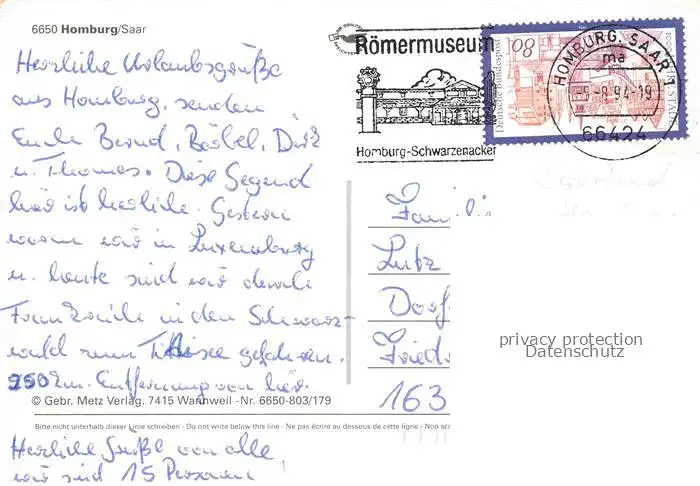 6650 Homburg/Saar
Herzliche Urlaubsgrüße
aus Homburg, senden
Euch Bernd, Bärbel, Dirk
u. Thomas. Diese Gegend
hier ist herrlich. Gestern
waren wir in Luxemburg
u. heute sind wir durch
Frankreich in den Schwarz-
wald zum Titisee gefahren.
250 km. Entfernung von hier.
© Gebr. Metz Verlag. 7415 Wannweil -Nr. 6650-803/179
Bitte nicht unterhalb dieser Linie schreiben - Do not write below this line - Ne pas écrire au dessous de cette ligne - Non sc
Herzliche Grüße von alle
wir sind 15 Personen!
Römermuseum
Homburg-Schwarzenacker
Deutsche Bundespost
80
HOMBURG, SAAR 1
ma
-9.-8.94-19
66424
Famili
Lutz
Dorf
Fried
163
privacy protection
Datenschutz